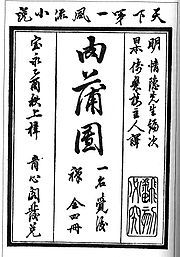 天下第一風流小說
明 情隱先生編次
日本 倚翠樓主人譯
肉蒲團
一名覺後禪 全四冊
翻刻必究
寶永乙酉秋上梓 青心閣發兌